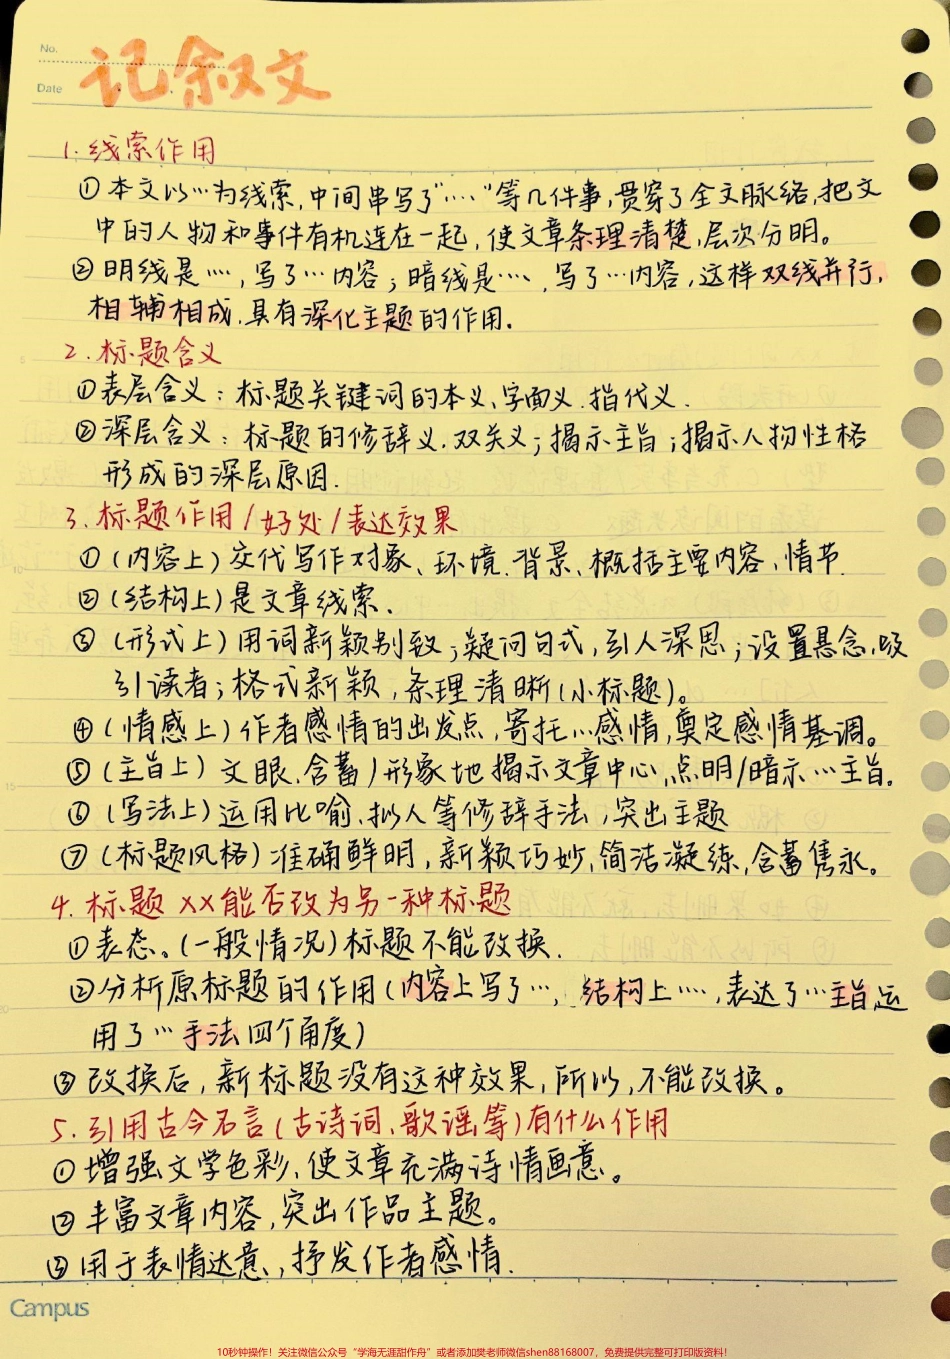 No.
Date
记叙文
1.线索作用
①本文以…为线索,中间串写了"……"等几件事,贯穿了全文脉络,把文
中的人物和事件有机连在一起,使文章条理清楚,层次分明。
②明线是……,写了…内容;暗线是……,写了…内容,这样双线并行,
相辅相成,具有深化主题的作用.
2.标题含义
①表层含义:标题关键词的本义、字面义.指代义.
②深层含义:标题的修辞义.双关义;揭示主旨;揭示人物性格
形成的深层原因.
3.标题作用/好处/表达效果
①(内容上)交代写作对象、环境.背景、概括主要内容,情节.
②(结构上)是文章线索.
③(形式上)用词新颖别致;疑问句式,引人深思;设置悬念,吸
引读者;格式新颖,条理清晰(小标题)。
④(情感上)作者感情的出发点,寄托…感情,奠定感情基调。
⑤(主旨上)文眼.含蓄/形象地揭示文章中心,点明/暗示…主旨.
⑥(写法上)运用比喻.拟人等修辞手法,突出主题
⑦(标题风格)准确鲜明,新颖巧妙,简洁凝练,含蓄隽永。
4.标题××能否改为另一种标题
①表态。(一般情况)标题不能改换.
②分析原标题的作用(内容上写了…,结构上……,表达了…主旨,运
用了…手法四个角度)
③改换后,新标题没有这种效果,所以,不能改换。
5.引用古今名言(古诗词、歌谣等)有什么作用
①增强文学色彩,使文章充满诗情画意。
②丰富文章内容,突出作品主题。
③用于表情达意,抒发作者感情.
Campus
10秒钟操作!关注微信公众号“学海无涯甜作舟”或者添加樊老师微信shen88168007,免费提供完整可打印版资料!